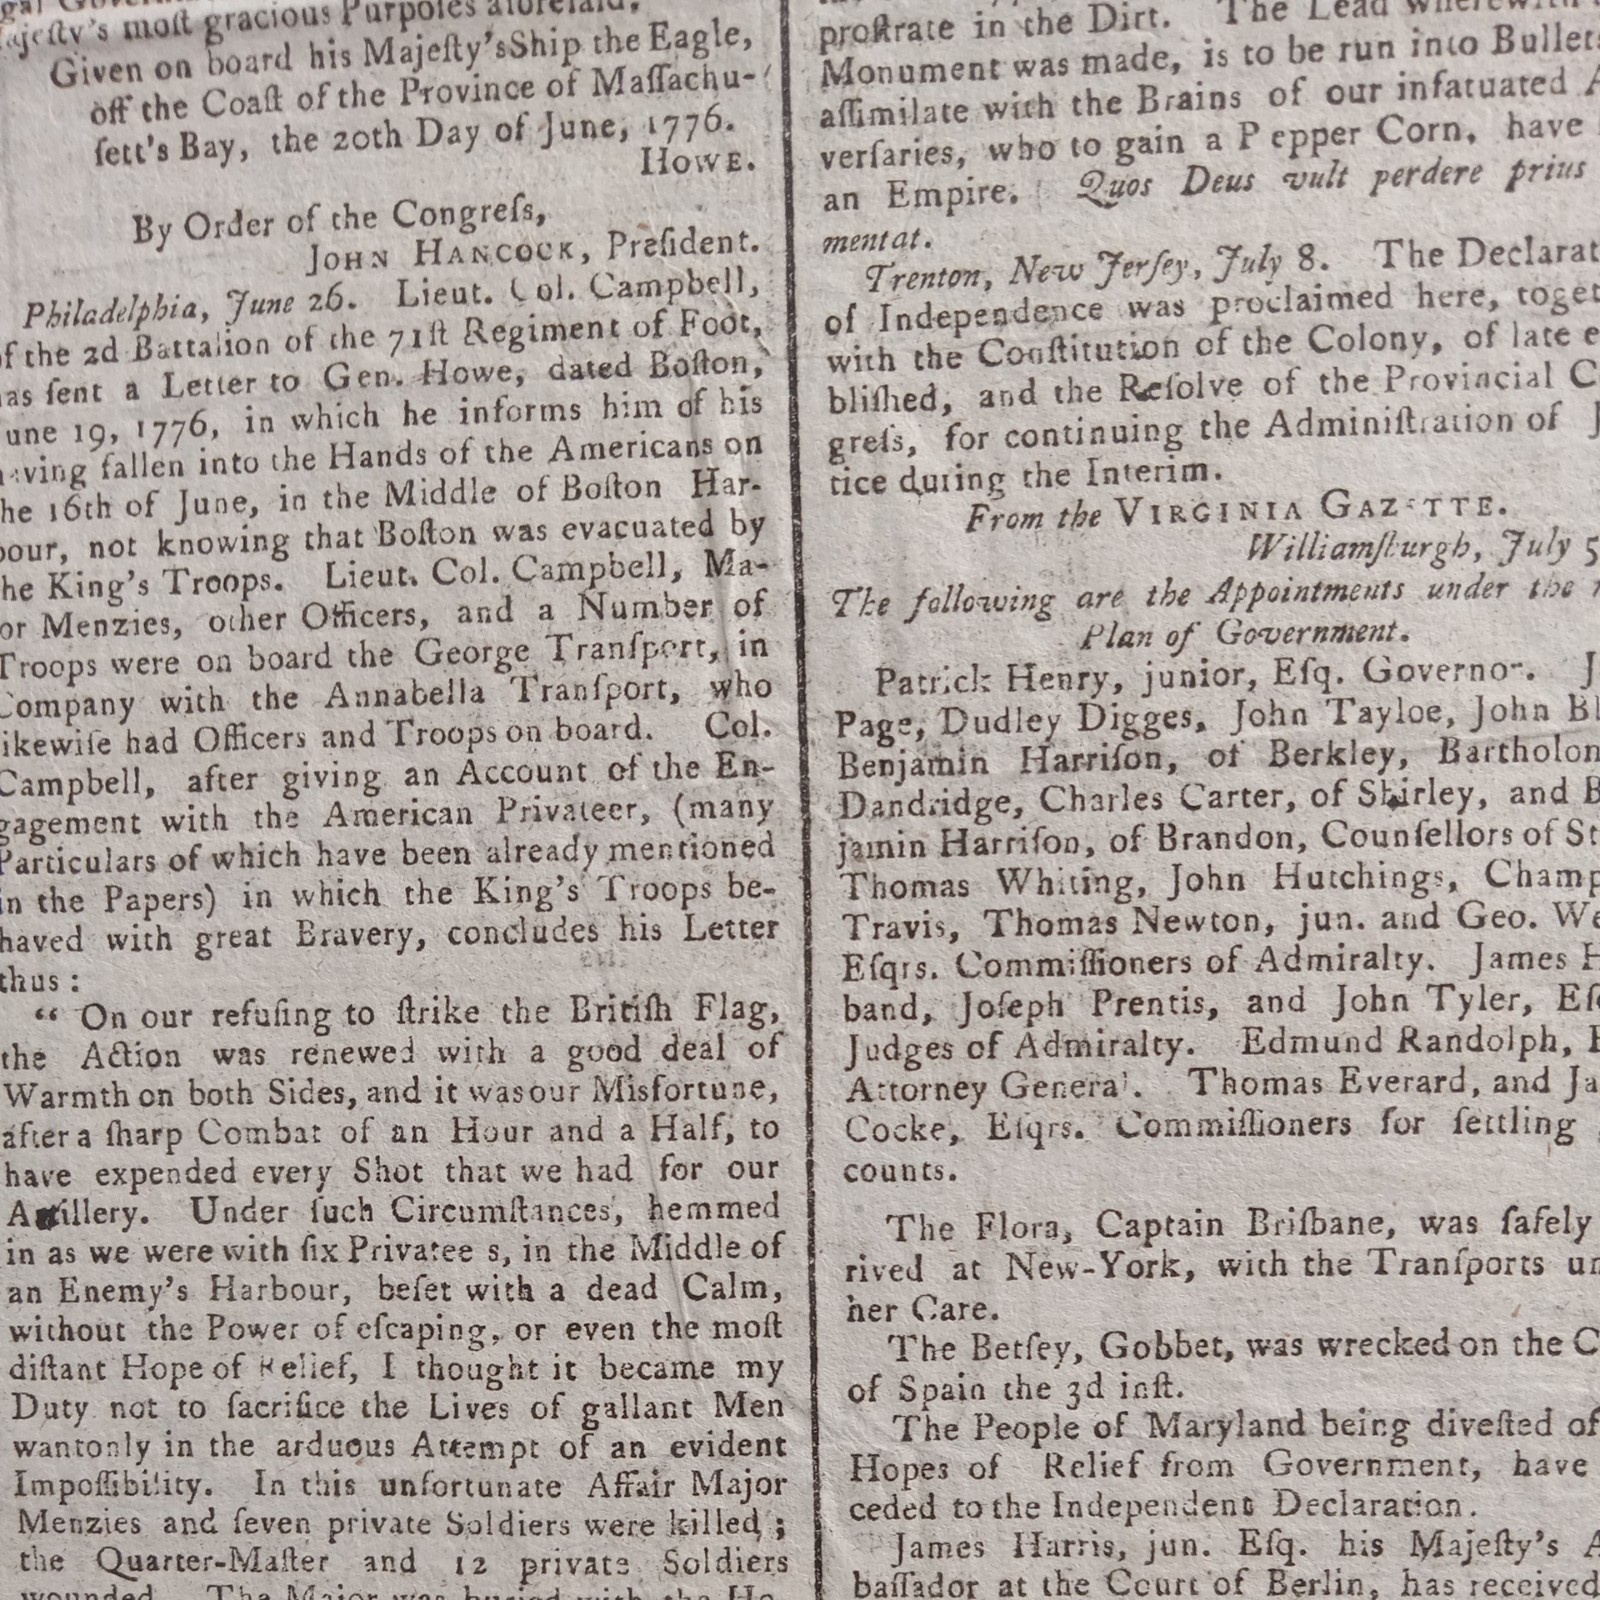 most gracious Purposes aforesaid.
Given on board his Majeſty'sShip the Eagle,
off the Coaſt of the Province of Maſſachu-
ſett's Bay, the 20th Day of June, 1776.
HOWE.
By Order of the Congreſs,
JOHN HANCOCK, Preſident.
Philadelphia, June 26. Lieut. Col. Campbell,
of the 2d Battalion of the 71ſt Regiment of Foot,
has ſent a Letter to Gen. Howe, dated Boſton,
June 19, 1776, in which he informs him of his
having fallen into the Hands of the Americans on
the 16th of June, in the Middle of Boſton Har-
bour, not knowing that Boſton was evacuated by
the King's Troops. Lieut. Col. Campbell, Ma-
jor Menzies, other Officers, and a Number of
Troops were on board the George Tranſport, in
Company with the Annabella Tranſport, who
likewiſe had Officers and Troops on board. Col.
Campbell, after giving an Account of the En-
gagement with the American Privateer, (many
Particulars of which have been already mentioned
in the Papers) in which the King's Troops be-
haved with great Bravery, concludes his Letter
thus:
“ On our refuſing to ſtrike the Britiſh Flag,
the Action was renewed with a good deal of
Warmth on both Sides, and it was our Misfortune,
after a ſharp Combat of an Hour and a Half, to
have expended every Shot that we had for our
Artillery. Under ſuch Circumſtances, hemmed
in as we were with ſix Privatee s, in the Middle of
an Enemy's Harbour, beſet with a dead Calm,
without the Power of eſcaping, or even the moſt
diſtant Hope of Relief, I thought it became my
Duty not to ſacrifice the Lives of gallant Men
wantonly in the arduous Attempt of an evident
Impoſſibility. In this unfortunate Affair Major
Menzies and ſeven private Soldiers were killed;
the Quarter-Maſter and 12 private Soldiers
wounded. The Major was buried with the Ho-
proſtrate in the Dirt. The Lead wherewith
Monument was made, is to be run into Bullets
aſſimilate with the Brains of our infatuated A
verſaries, who to gain a P epper Corn, have
an Empire. Quos Deus vult perdere prius
mentat.
Trenton, New Jerſey, July 8. The Declarat
of Independence was proclaimed here, toget
with the Conſtitution of the Colony, of late e
bliſhed, and the Reſolve of the Provincial C
greſs, for continuing the Adminiſtration of J
tice during the Interim.
From the VIRGINIA GAZETTE.
Williamſburgh, July 5
The following are the Appointments under the
Plan of Government.
Patrick Henry, junior, Eſq. Governor. J
Page, Dudley Digges, John Tayloe, John Bl
Benjamin Harriſon, of Berkley, Bartholom
Dandridge, Charles Carter, of Shirley, and B
jamin Harriſon, of Brandon, Counſellors of St
Thomas Whiting, John Hutchings, Champ
Travis, Thomas Newton, jun. and Geo. We
Eſqrs. Commiſſioners of Admiralty. James H
band, Joſeph Prentis, and John Tyler, Eſ
Judges of Admiralty. Edmund Randolph, E
Attorney General. Thomas Everard, and Ja
Cocke, Eſqrs. Commiſſioners for ſettling
counts.
The Flora, Captain Briſbane, was ſafely
rived at New-York, with the Tranſports un
her Care.
The Betſey, Gobbet, was wrecked on the C
of Spain the 3d inſt.
The People of Maryland being diveſted of
Hopes of Relief from Government, have
ceded to the Independent Declaration.
James Harris, jun. Eſq. his Majeſty's A
baſſador at the Court of Berlin, has received